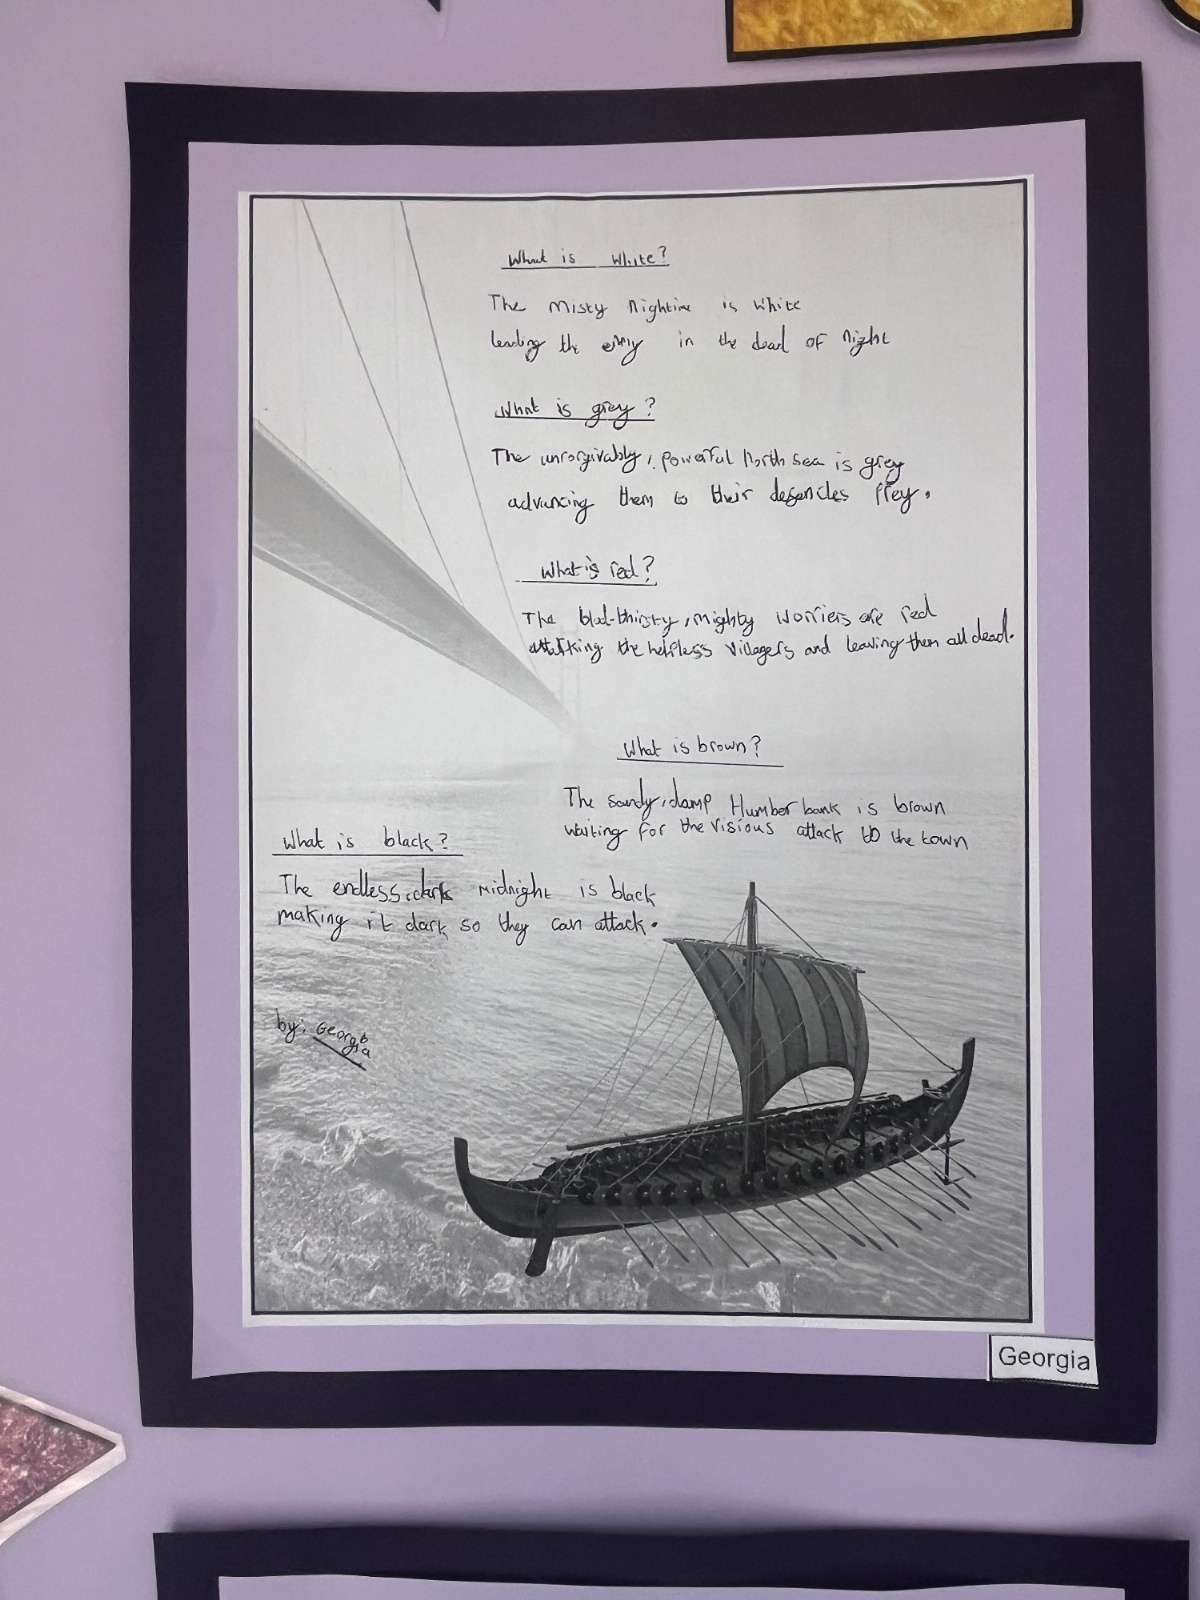 What is white?
The Misty Nightime is white
leading the enmy in the dead of Night
What is grey?
The unforgivably, powerful North sea is grey
advancing them to their defencles prey.
What is red?
The blud-thirsty, mighty worriers are red
attacking the helpless villagers and leaving them all dead.
What is brown?
The sandy, damp Humber bank is brown
waiting for the visious attack to the town
What is black?
The endless, dark midnight is black
making it dark so they can attack.
by: Georgia
Georgia